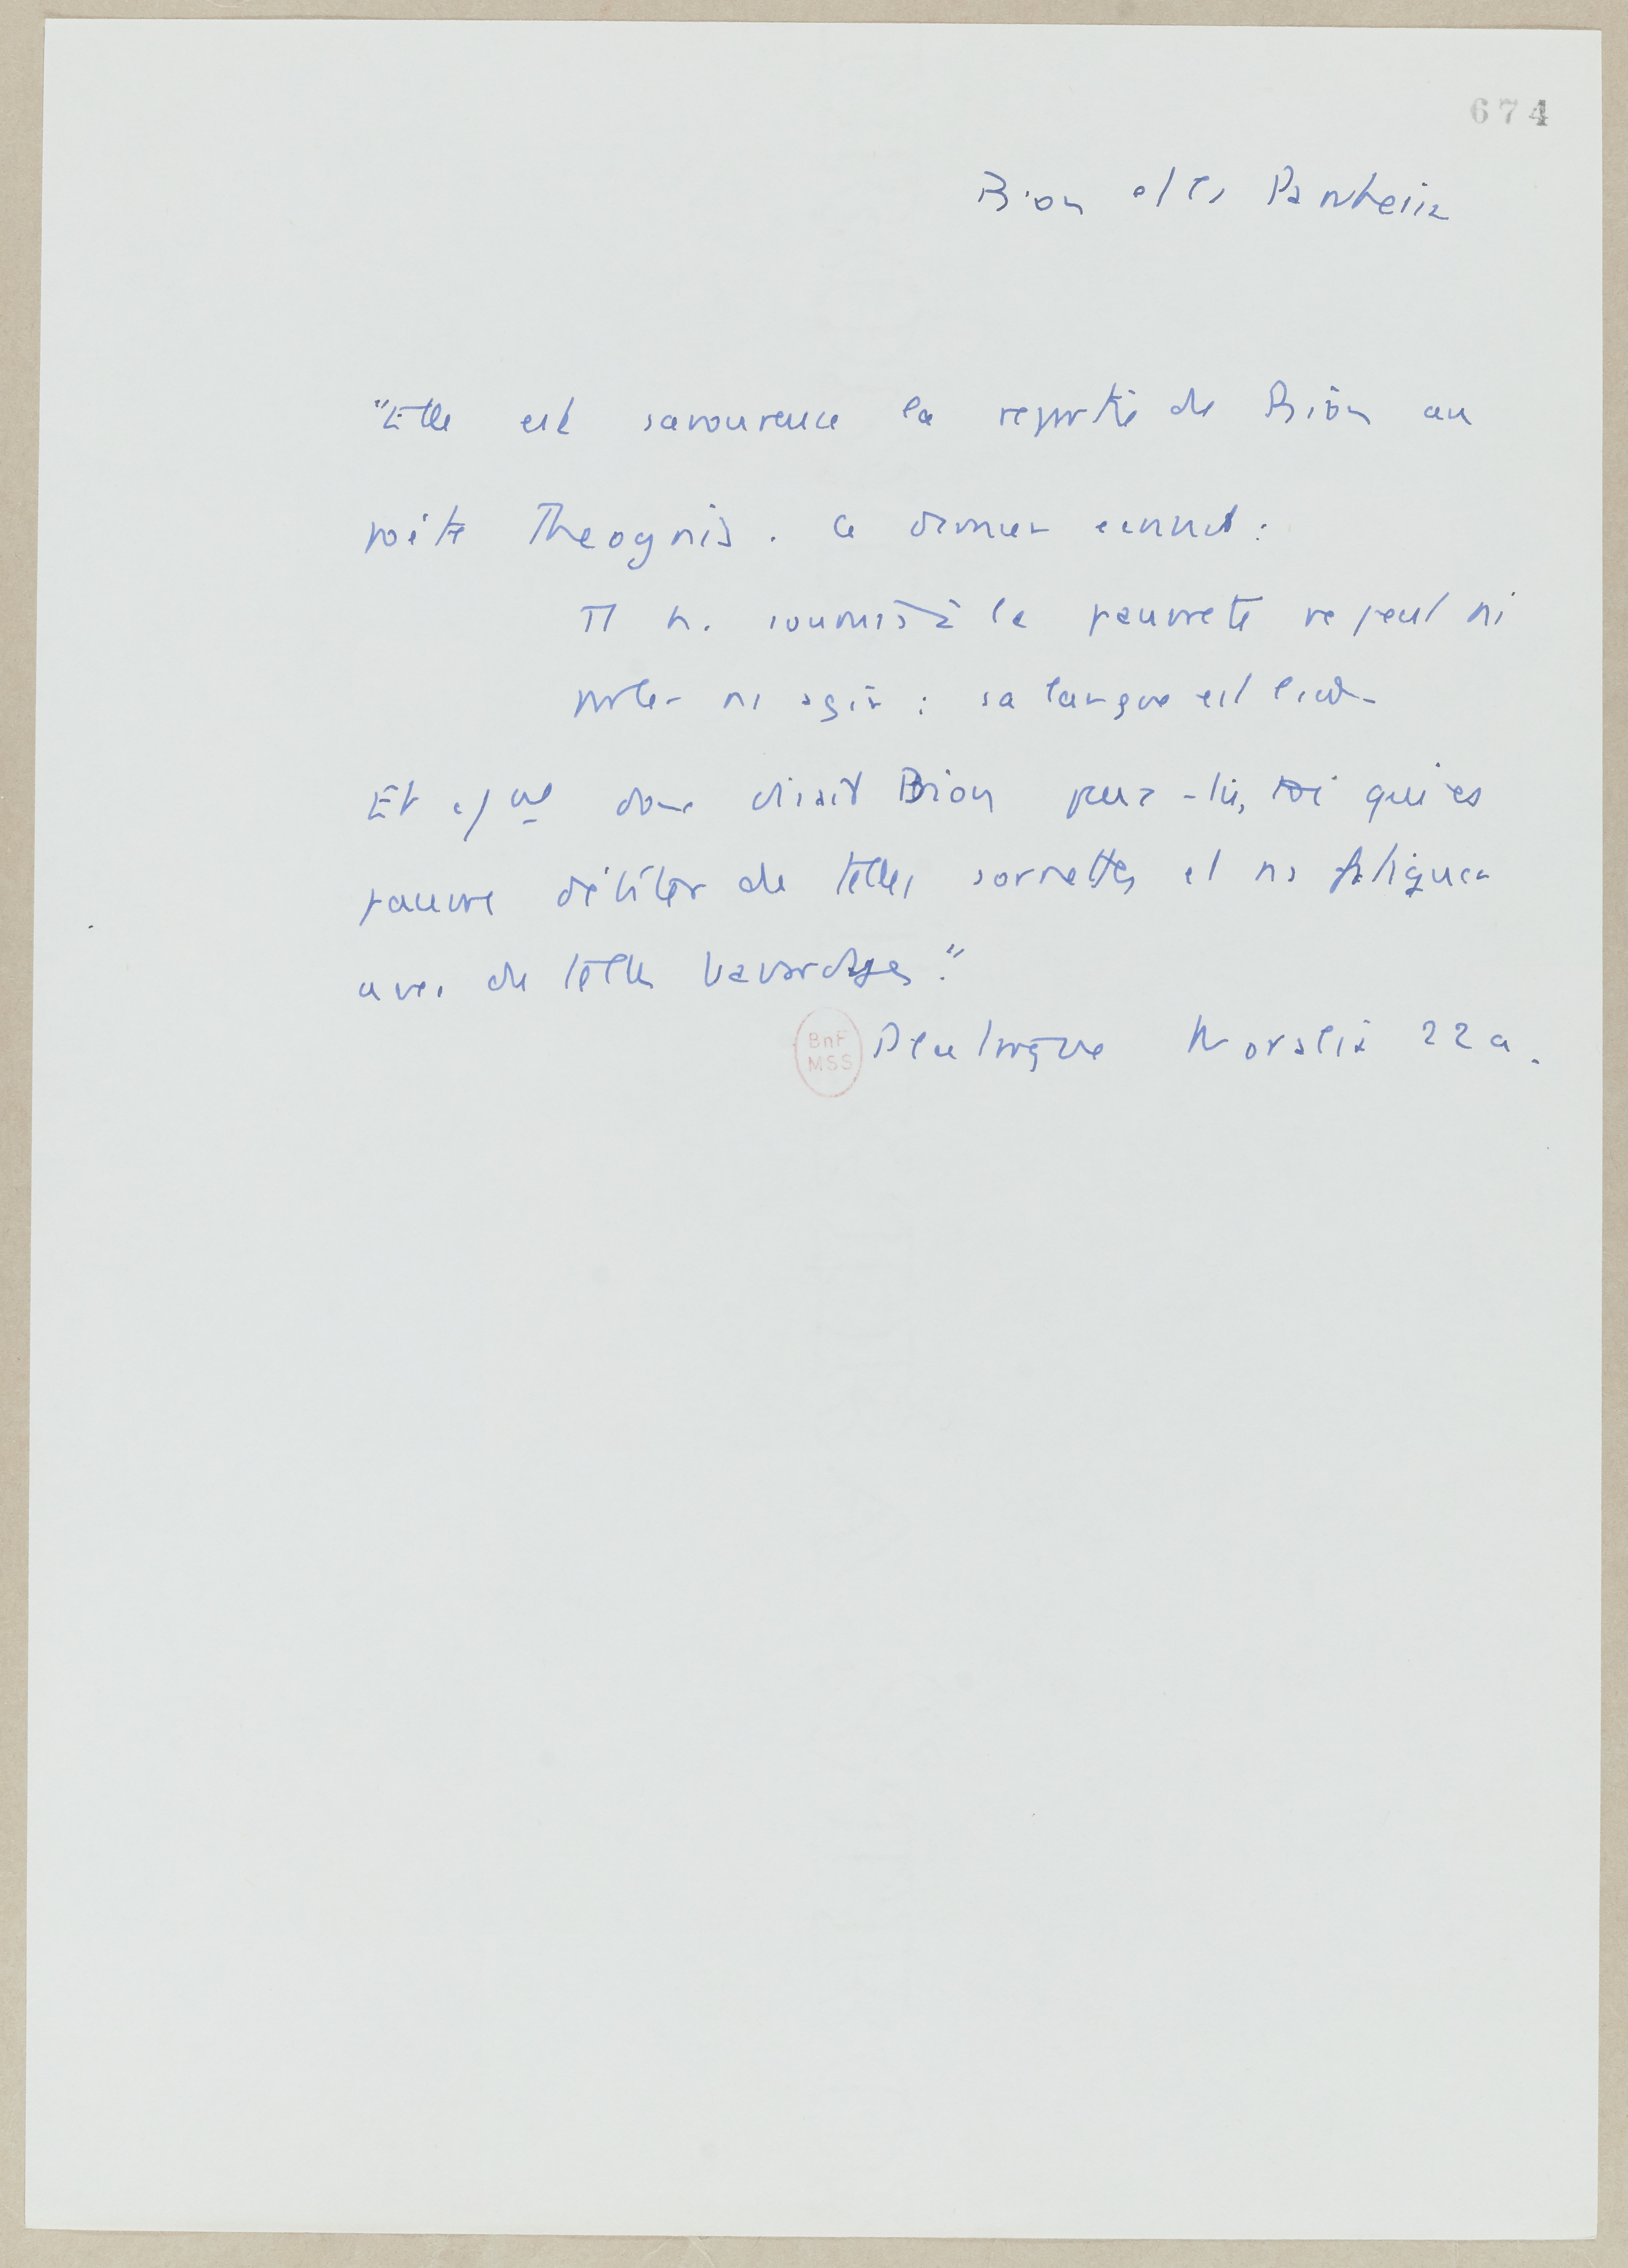 674
Bion et la Parrhesia
"Elle est savoureuse la repartie de Bion au
poète Theognis. Ce dernier ecrivit :
Tt h. soumis à la pauvreté ne peut ni
parler ni agir : sa langue est liée
Et ct donc disait Bion peux-tu, toi qui es
pauvre débiter de telles sornettes et ns fatiguer
avec de telles bavardages."
BnF
MSS
Plutarque Moralia 22a.